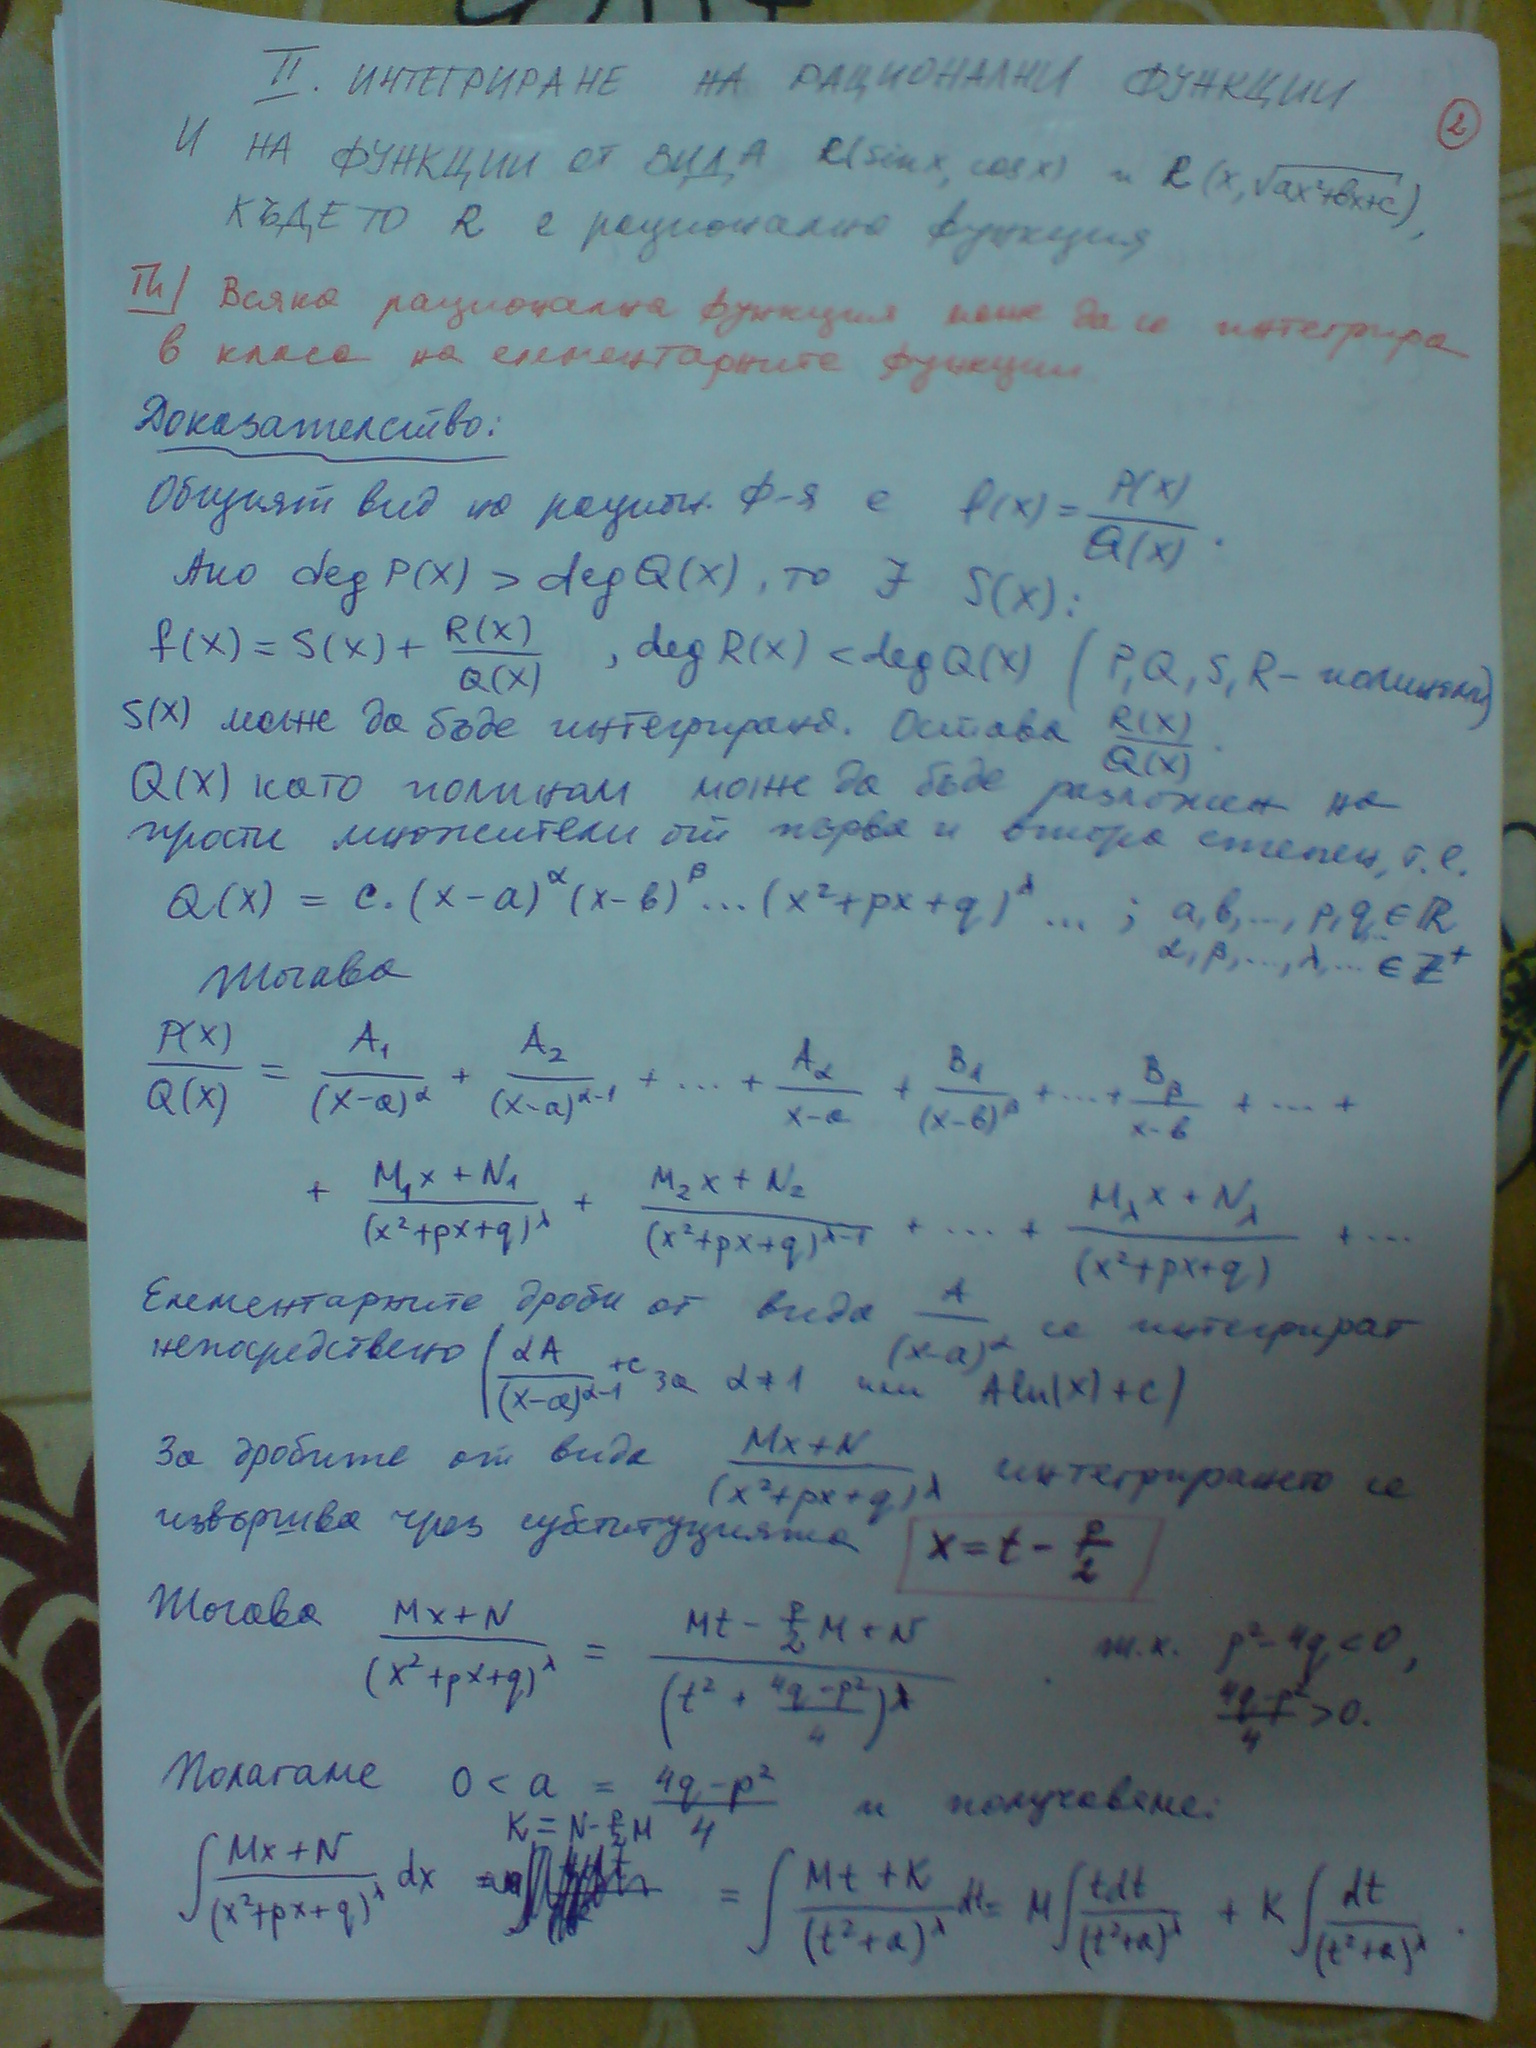 II. ИНТЕГРИРАНЕ НА РАЦИОНАЛНИ ФУНКЦИИ
2
И НА ФУНКЦИИ ОТ ВИДА R(sinx, cosx) и R(x, √ax²+bx+c),
КЪДЕТО R е рационална функция
Th/ Всяка рационална функция може да се интегрира
в класа на елементарните функции
Доказателство:
Общият вид на рацион. ф-я е f(x) = P(x)/Q(x).
Ако deg P(x) > deg Q(x), то ∃ S(x):
f(x) = S(x) + R(x)/Q(x), deg R(x) < deg Q(x) (P, Q, S, R - полиноми)
S(x) може да бъде интегрирана. Остава R(x)/Q(x).
Q(x) като полином може да бъде разложен на
прости множители от първа и втора степен, т.е.
Q(x) = c.(x-a)^α (x-b)^β ... (x²+px+q)^λ ... ; a, b, ..., p, q, .. ∈ R
α, β, ..., λ, ... ∈ Z⁺
Тогава
P(x)/Q(x) = A₁/(x-a)^α + A₂/(x-a)^(α-1) + ... + A_α/(x-a) + B₁/(x-b)^β + ... + B_β/(x-b) + ... +
+ (M₁x + N₁)/(x²+px+q)^λ + (M₂x + N₂)/(x²+px+q)^(λ-1) + .... + (M_λx + N_λ)/(x²+px+q) + ...
Елементарните дроби от вида A/(x-a)^α се интегрират
непосредствено (αA/(x-a)^(α-1) +c за α≠1 или A ln(x) + c)
За дробите от вида (Mx+N)/(x²+px+q)^λ интегрирането се
извършва чрез субституцията x = t - p/2
Тогава (Mx+N)/(x²+px+q)^λ = (Mt - p/2 M + N)/(t² + (4q-p²)/4)^λ . т.к. p²-4q < 0,
(4q-p²)/4 > 0.
Полагаме 0 < a = (4q-p²)/4 и получаваме:
K = N - p/2 M
∫ (Mx+N)/(x²+px+q)^λ dx = ∫ (Mt + K)/(t²+a)^λ dt = M ∫ tdt/(t²+a)^λ + K ∫ dt/(t²+a)^λ .